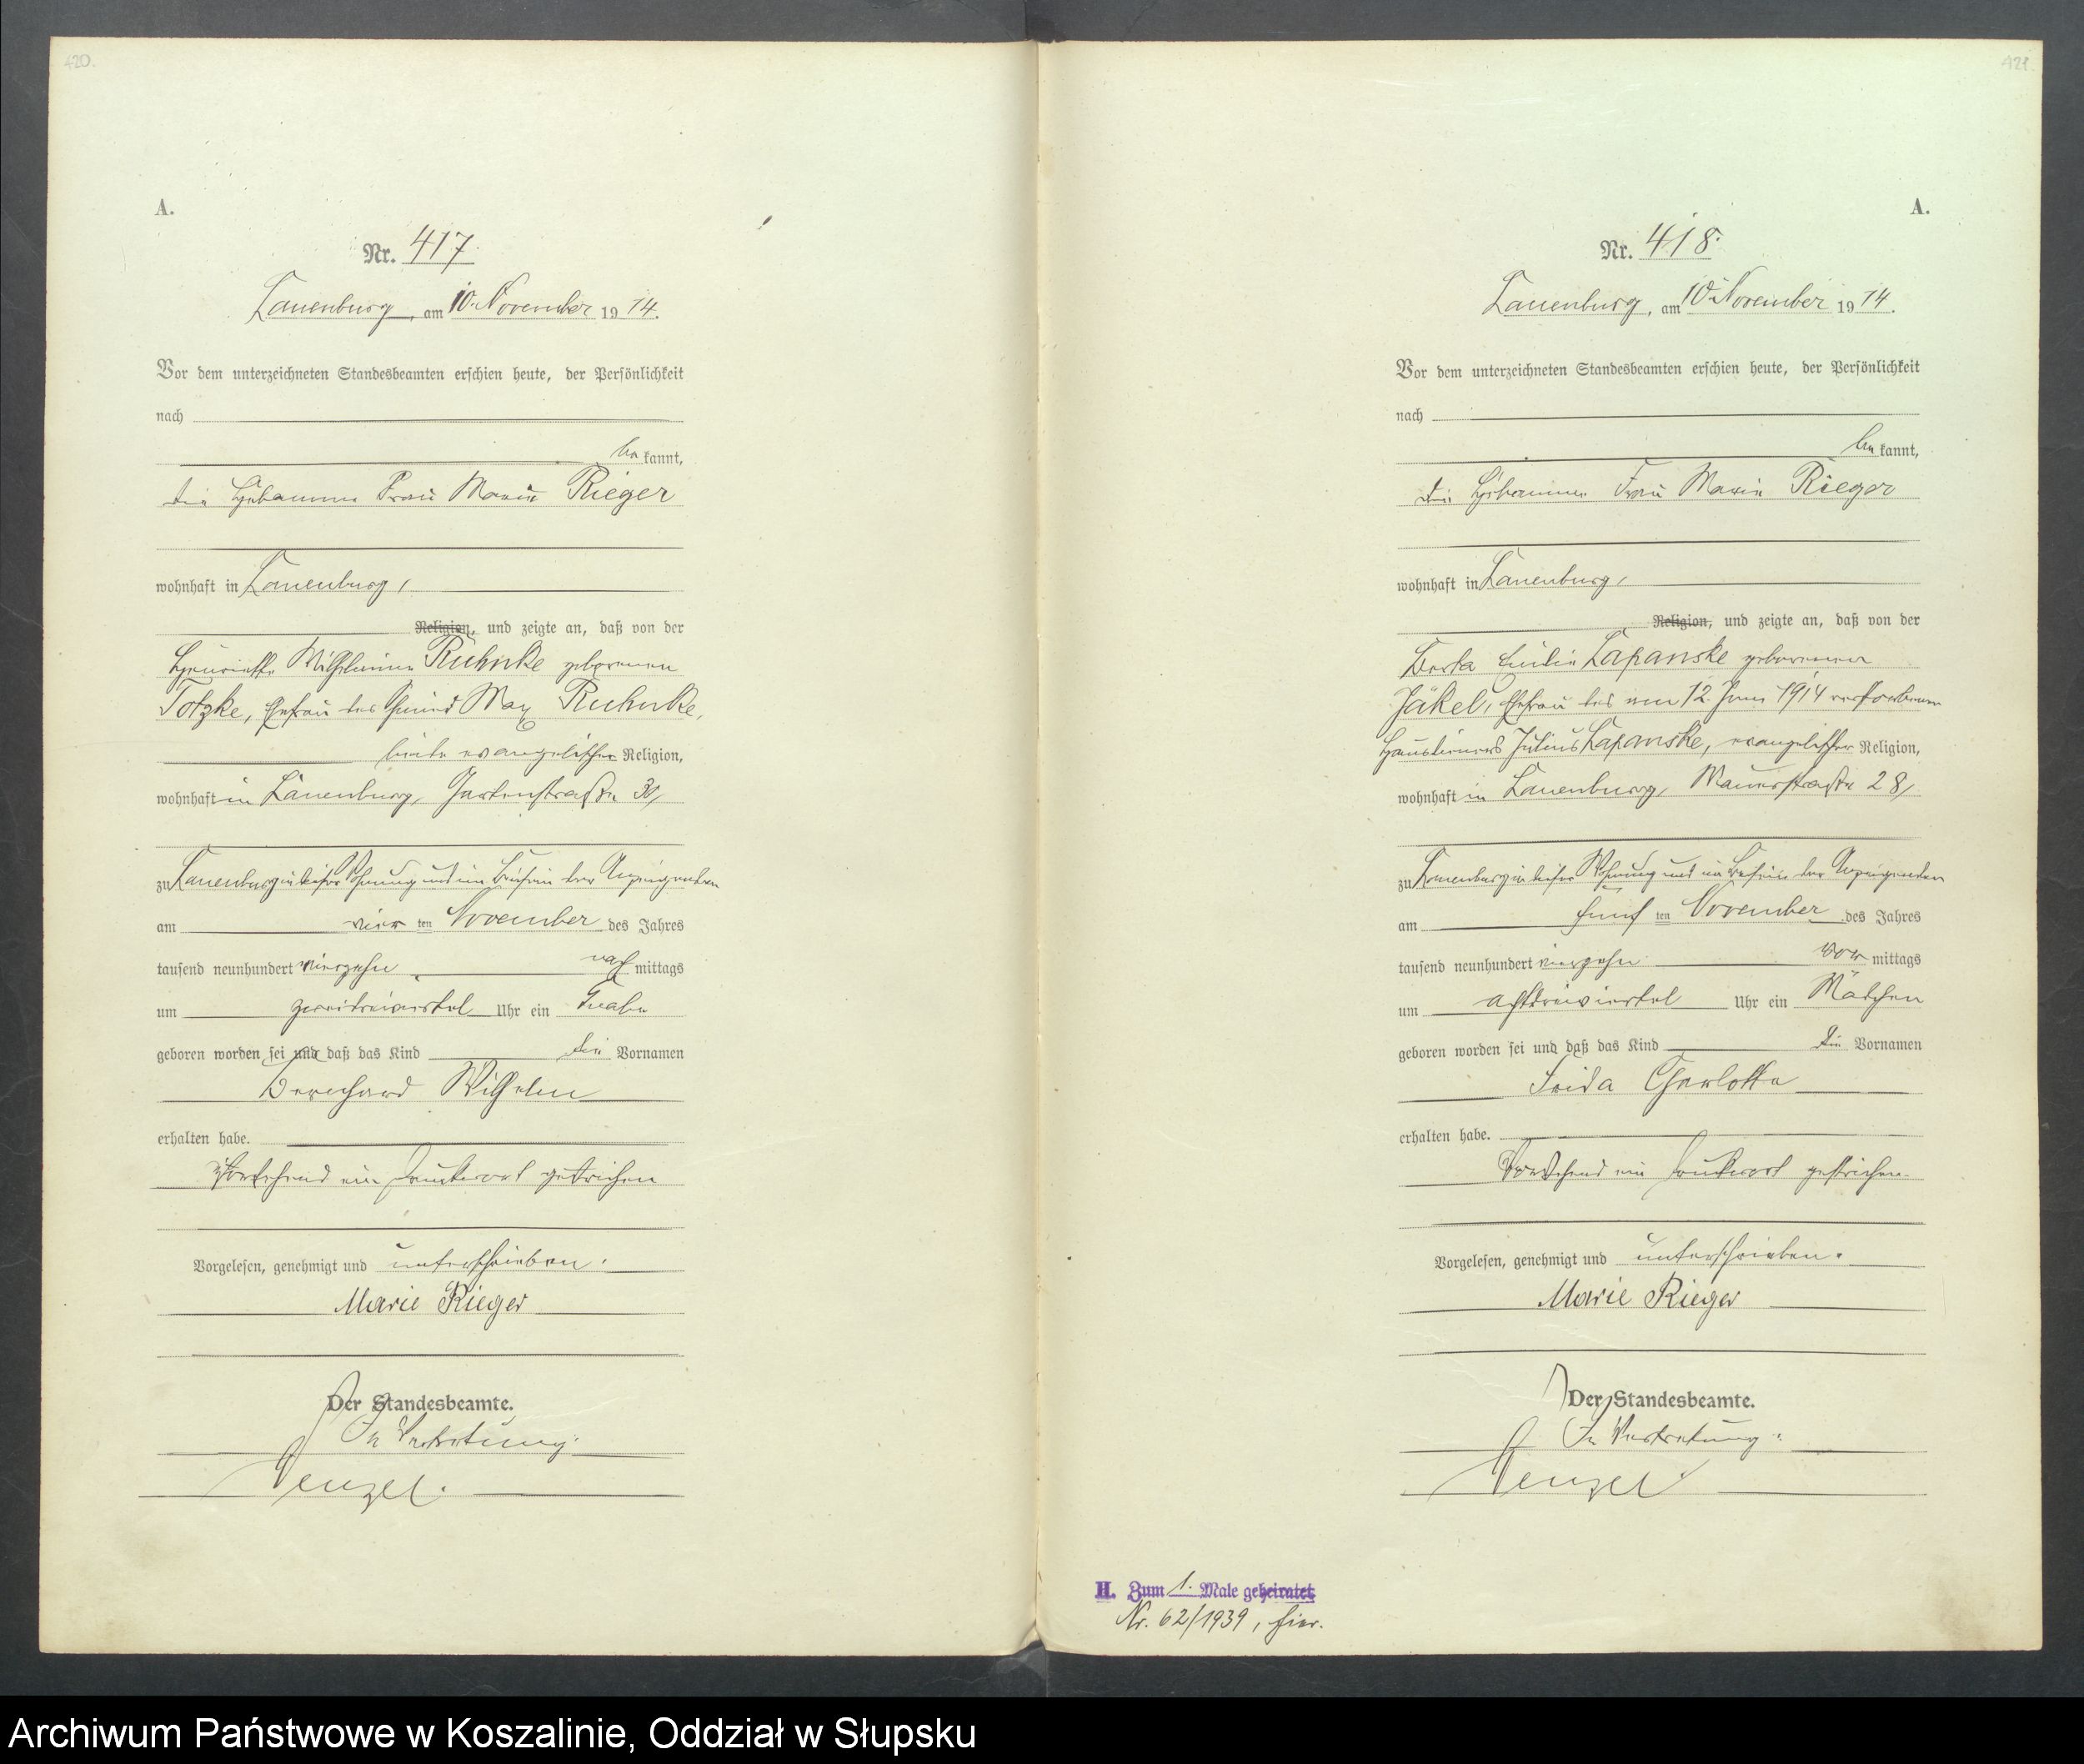 420.
A.
Nr. 417.
Lauenburg, am 10. November 1914.
Vor dem unterzeichneten Standesbeamten erschien heute, der Persönlichkeit
nach
bekannt,
die Hebamme Frau Marie Rieger
wohnhaft in Lauenburg,
Religion, und zeigte an, daß von der
Henriette Wilhelmine Ruhnke geborenen
Totzke, Ehefrau des Max Ruhnke,
beide evangelischer Religion,
wohnhaft in Lauenburg, Gartenstraße 30,
zu Lauenburg in dieser Wohnung und im Beisein der Anzeigenden
am vierten November des Jahres
tausend neunhundert vierzehn nachmittags
um zweidreiviertel Uhr ein Knabe
geboren worden sei und daß das Kind die Vornamen
Bernhard Wilhelm
erhalten habe.
Vorstehend ein Druckwort gestrichen
Vorgelesen, genehmigt und unterschrieben.
Marie Rieger
Der Standesbeamte.
In Vertretung.
Wenzel.
421.
A.
Nr. 418.
Lauenburg, am 10. November 1914.
Vor dem unterzeichneten Standesbeamten erschien heute, der Persönlichkeit
nach
bekannt,
die Hebamme Frau Marie Rieger
wohnhaft in Lauenburg,
Religion, und zeigte an, daß von der
Berta Emilie Lapanske geborenen
Jäkel, Ehefrau des am 12. Juni 1914 verstorbenen
Hausdieners Julius Lapanske, evangelischer Religion,
wohnhaft in Lauenburg, Mauerstraße 28,
zu Lauenburg in dieser Wohnung und im Beisein der Anzeigenden
am fünften November des Jahres
tausend neunhundert vierzehn vormittags
um achtdreiviertel Uhr ein Mädchen
geboren worden sei und daß das Kind die Vornamen
Frida Charlotte
erhalten habe.
Vorstehend ein Druckwort gestrichen.
Vorgelesen, genehmigt und unterschrieben.
Marie Rieger
Der Standesbeamte.
In Vertretung:
Wenzel
II. Zum 1. Male geheiratet
Nr. 62/1939, hier.
Archiwum Państwowe w Koszalinie, Oddział w Słupsku